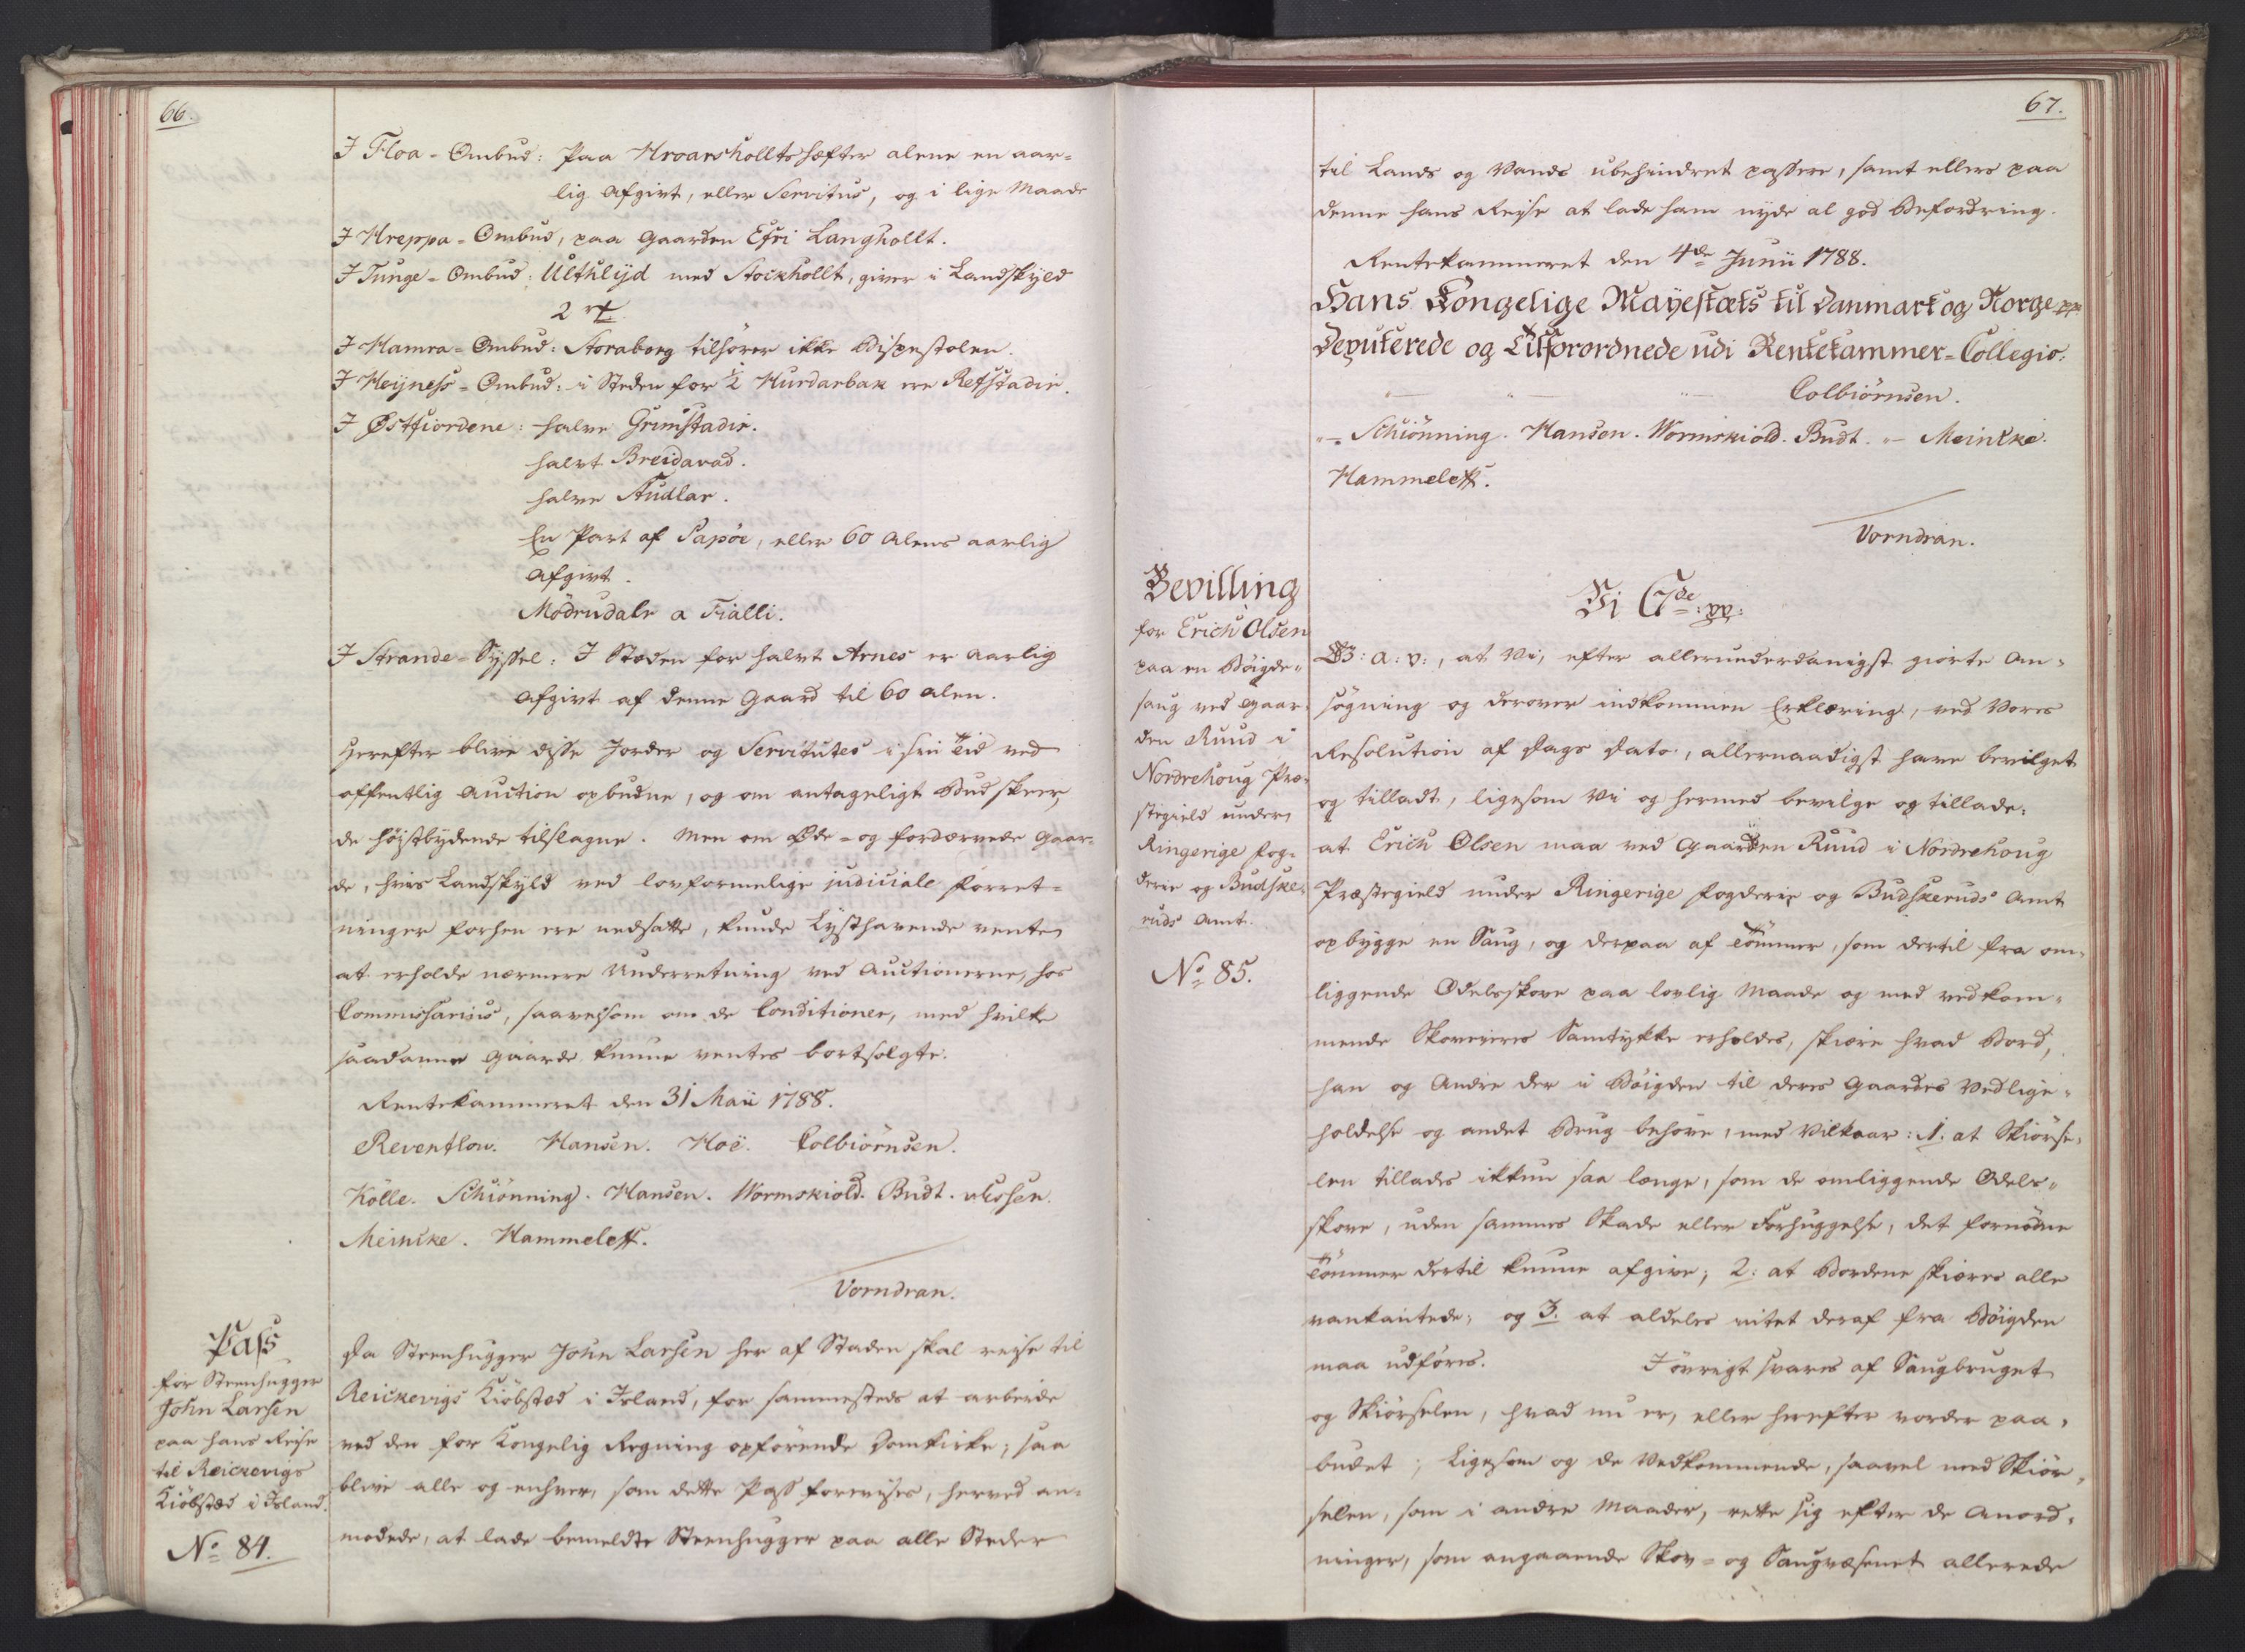 66.
I Floa-Ombud: paa Hroarshollts hæfter alene en aar-
lig Afgivt, eller Servitus, og i lige Maade
I Hreppa-Ombud, paa Gaarden Efri Langhollt.
I Tunge-Ombud: Ulthlyd med Stockhollt, giver i Landskyld
2 rd
I Hamra-Ombud: Storaborg tilhører ikke Bispestolen.
I Heyness-Ombud: i Steden for 1/2 Hurdarbak ere Refstadir.
I Østfiordene: halve Grimstadir.
halvt Breidavad.
halve Studlar.
En Part af Papøe, eller 60 Alens aarlig
Afgivt.
Mödrudale a Fialli.
I Strande-Syssel: I Støden for halvt Arnes er aarlig
Afgivt af denne Gaard til 60 Alen.
Herefter blive disse Jorder og Servitutes i sin Tid ved
offentlig Auction opbudne, og om antageligt Bud skeer,
de høistbydende tilslagne. Men om Øde- og fordærvede Gaar-
de, hvis Landskyld ved lovformelige judiciale Forret-
ninger forhen ere nedsatte, kunde Lysthavende vente
at erholde nærmere Underretning ved Auctionerne, hos
Commissarius, saavelsom om de Conditioner, med hvilke
saadanne Gaarde kunne ventes bortsolgte.
Rentekammeret den 31 Maii 1788.
Reventlow. Hansen. Hoë. Colbiörnsen.
Kölle. Schiönning. Hansen. Wormskiold. Budt. Aussen.
Meincke. Hammeleff.
Vorndran.
Pass
for Steenhugger
John Larsen
paa hans Reise
til Reickevigs
Kiöbsted i Island.
No 84.
Da Steenhugger John Larsen her af Staden skal reise til
Reickevigs Kiöbsted i Island, for sammesteds at arbeide
ved den for Kongelig Regning opförende Domkirke; saa
blive alle og enhver, som dette Pass forevises, herved an-
modede, at lade bemeldte Steenhugger paa alle Steder
67.
til Lands og Vands ubehindret passere, samt ellers paa
denne hans Reyse at lade ham nyde al god Befordring.
Rentekammeret den 4de Junii 1788.
Hans Kongelige Mayestæts til Danmark og Norge pp
Deputerede og Tilforordnede udi Rentekammer-Collegio.
Colbiörnsen.
Schiönning. Hansen. Wormskiold. Budt. Meincke.
Hammeleff.
Vorndran.
Bevilling
for Erich Olsen
paa en Böigde-
saug ved Gaar-
den Ruud i
Nordrehoug Præ-
stegield under
Ringerige Fog-
derie og Budske-
ruds Amt.
No 85.
Vi C 7de: pp:
G: a: v:, at Vi, efter allerunderdanigst giorte An-
søgning og derover indkommen Erklæring, ved Vores
Resolution af Dags Dato, allernaadigst have bevilget
og tilladt, ligesom Vi og hermed bevilge og tillade:
at Erich Olsen maa ved Gaarden Ruud i Nordrehoug
Præstegield under Ringerige Fogderie og Budskeruds Amt
opbygge en Saug, og derpaa af Tömmer, som dertil fra om-
liggende Odelsskove paa lovlig Maade og med vedkom-
mende Skoveieres Samtykke erholdes, skiære hvad Bord,
han og Andre der i Böigden til deres Gaardes Vedlige-
holdelse og andet Brug behöve, med Vilkaar: 1. at Skiörse-
len tillades ikkun saa længe, som de omliggende Odels-
skove, uden sammes Skade eller Forhuggelse, det fornödne
Tömmer dertil kunne afgive; 2: at Bordene skiæres alle
vankantede; og 3. at aldeles intet deraf fra Böigden
maa udföres. I övrigt svares af Saugbruget
og Skiörselen, hvad nu er, eller herefter vorder paa-
budet; Ligesom og de Vedkommende, saavel med Skiör-
selen, som i andre Maader, rette sig efter de Anord-
ninger, som angaaende Skov- og Saugvæsenet allerede